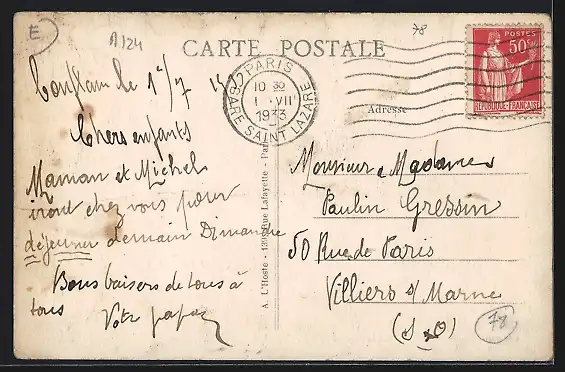 E
A124
78
CARTE POSTALE
POSTES
50c
REPUBLIQUE FRANÇAISE
PARIS
GARE SAINT LAZARE
10 30
1 - VII
1933
Conflans le 1er/7
Chers enfants
Maman et Michel
iront chez vous pour
déjeuner demain Dimanche
Bons baisers de tous à
tous
Votre papa
A. L'Hoste - 139 Rue Lafayette - Paris
Adresse
Monsieur & Madame
Paulin Gressin
50 Rue de Paris
Villiers s/ Marne
(S & O)
78